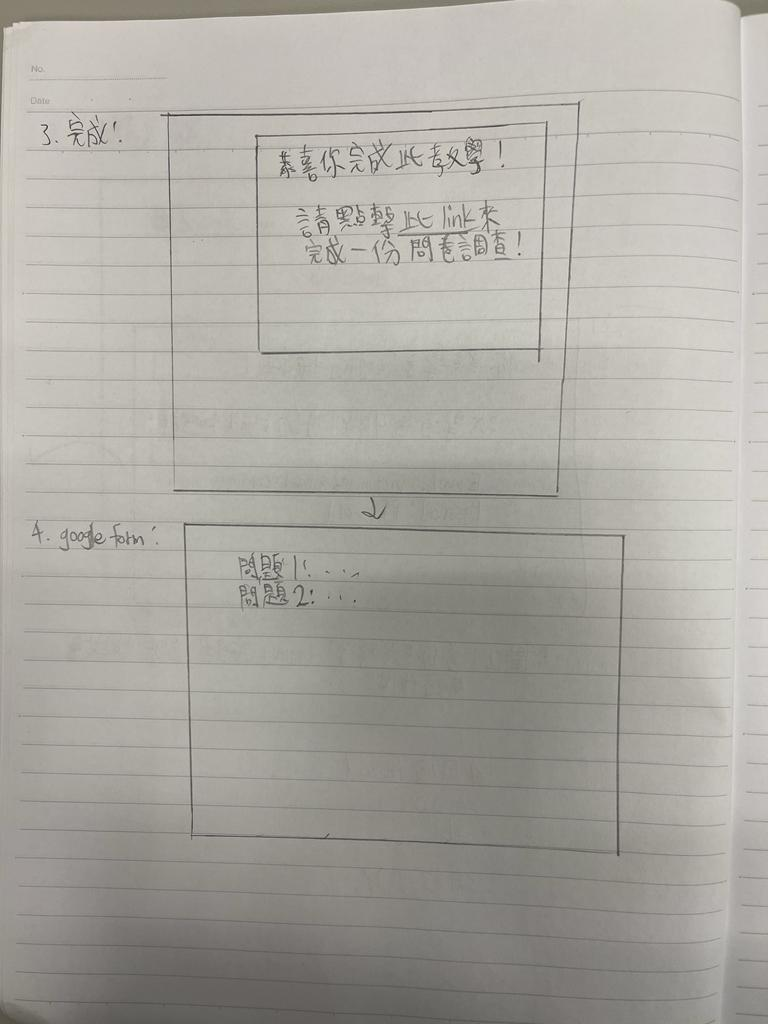 No.
Date
3. 完成!
恭喜你完成此教學!
請點擊此link來
完成一份問卷調查!
4. google form:
問題1: ...
問題2: ...